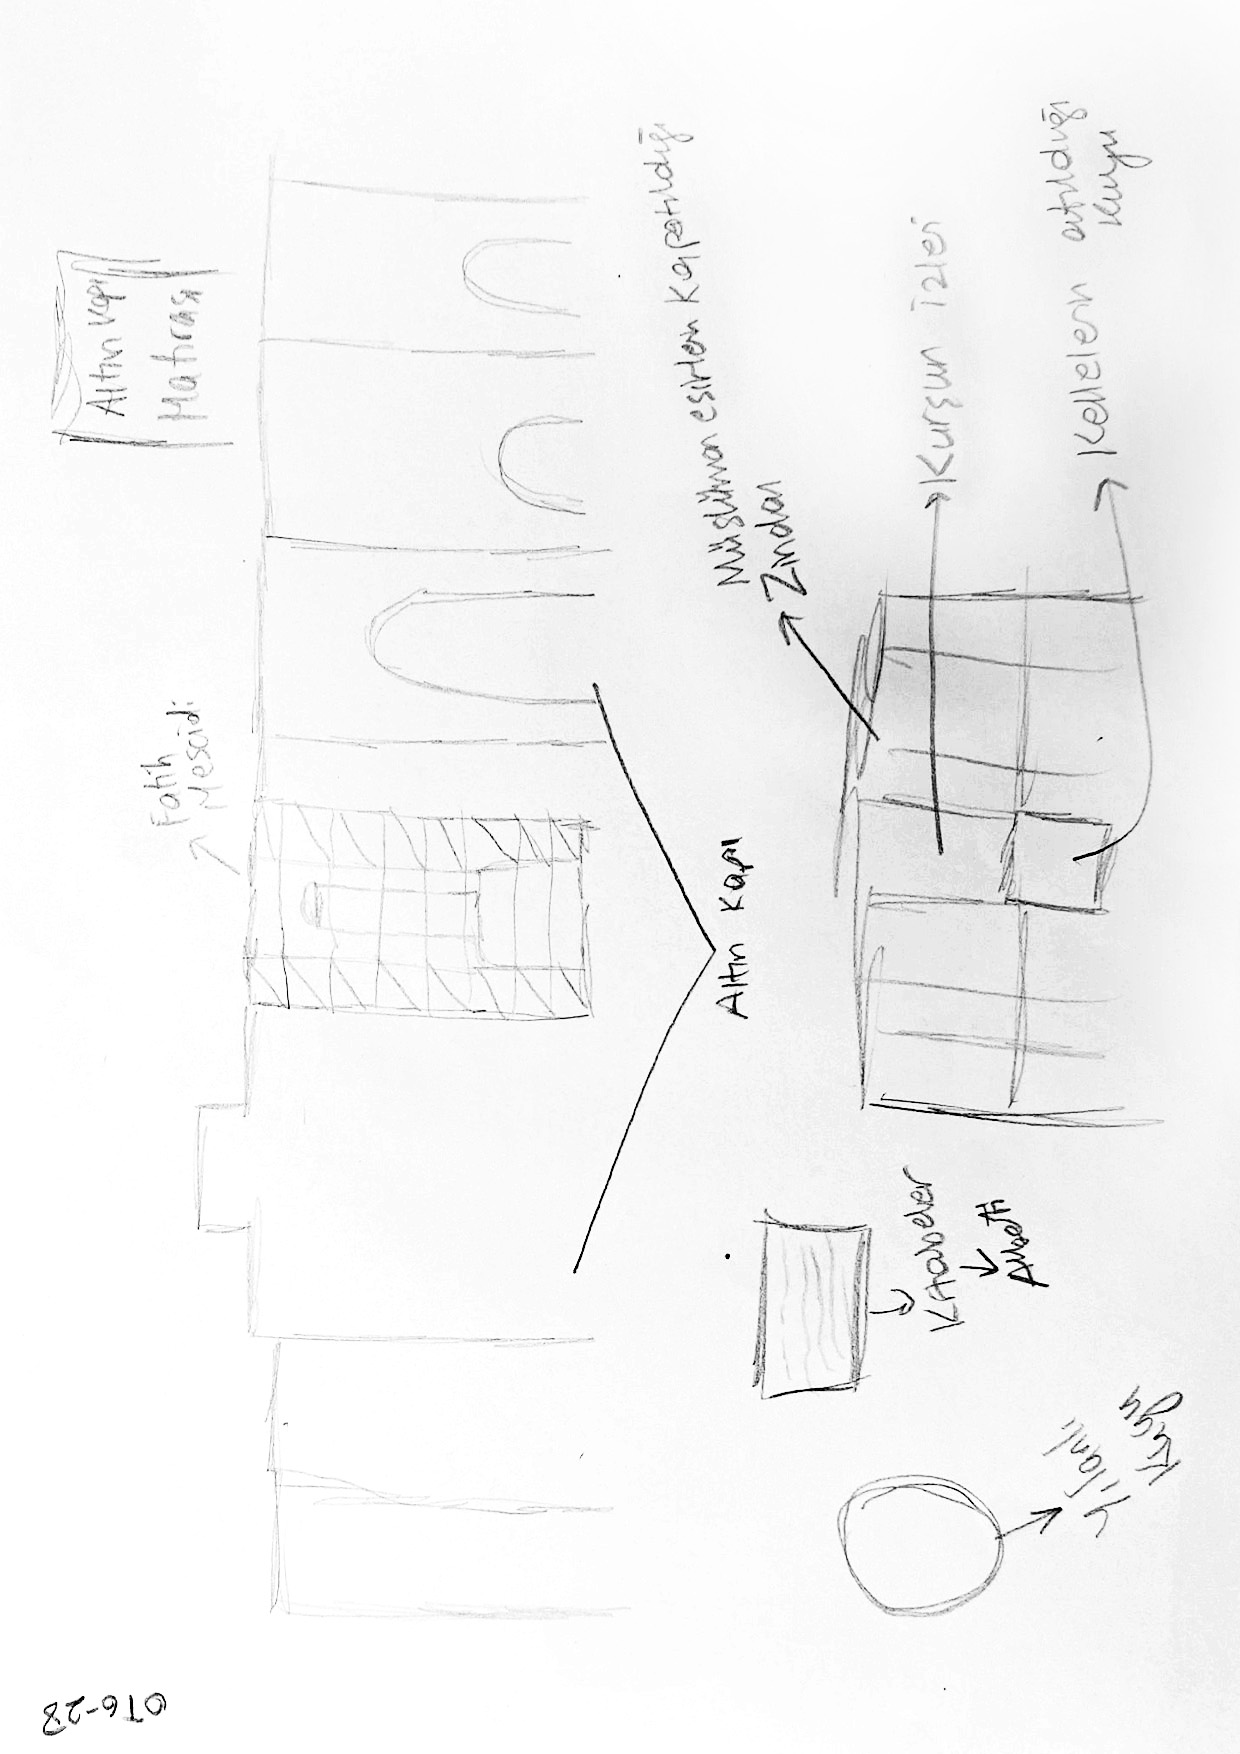 OT6-28
Altın Kapı
Hatırası
Fatih
Mescidi
Altın Kapı
Müslüman esirlerin Kapatıldığı
Zindan
Kitabeler
Kurşun izleri
Yılanlı
Kuyu
Kellelerin atıldığı
Kuyu